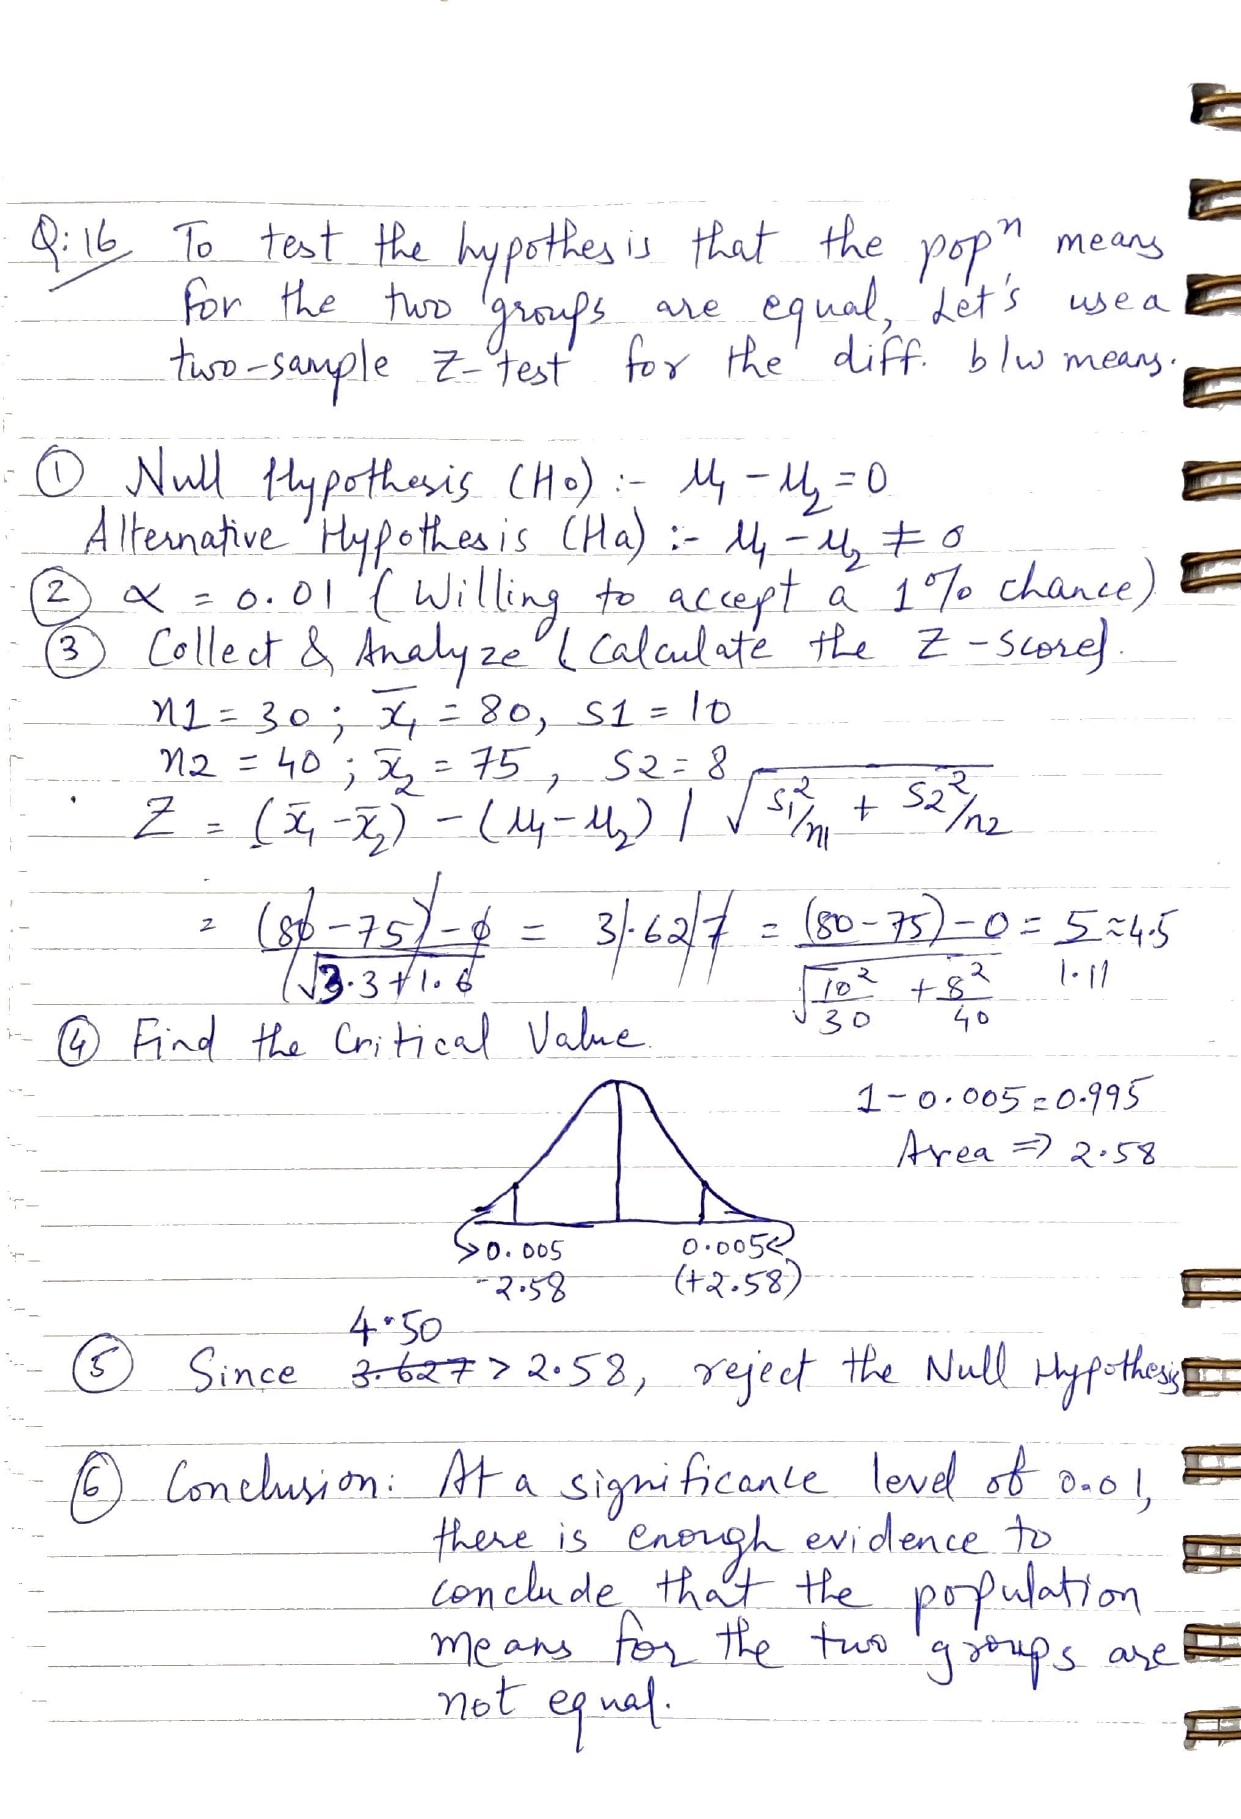 Q:16 To test the hypothesis that the popⁿ means
for the two groups are equal, Let's use a
two-sample Z-test for the diff. b/w means.
① Null Hypothesis (H0) :- μ1 - μ2 = 0
Alternative Hypothesis (Ha) :- μ1 - μ2 ≠ 0
② α = 0.01 (Willing to accept a 1% chance)
③ Collect & Analyze (Calculate the Z-score).
n1 = 30 ; x̄1 = 80, S1 = 10
n2 = 40 ; x̄2 = 75, S2 = 8
Z = (x̄1 - x̄2) - (μ1 - μ2) / √(S1²/n1 + S2²/n2)
= (80-75)-0 / (√3.3+1.6 = 3.627 = (80-75)-0 / √(10²/30 + 8²/40) = 5/1.11 ≈ 4.5
④ Find the Critical Value.
1-0.005=0.995
Area ⇒ 2.58
0.005 0.005
-2.58 (+2.58)
4.50
⑤ Since 3.627 > 2.58, reject the Null Hypothesis
⑥ Conclusion: At a significance level of 0.01,
there is enough evidence to
conclude that the population
means for the two groups are
not equal.